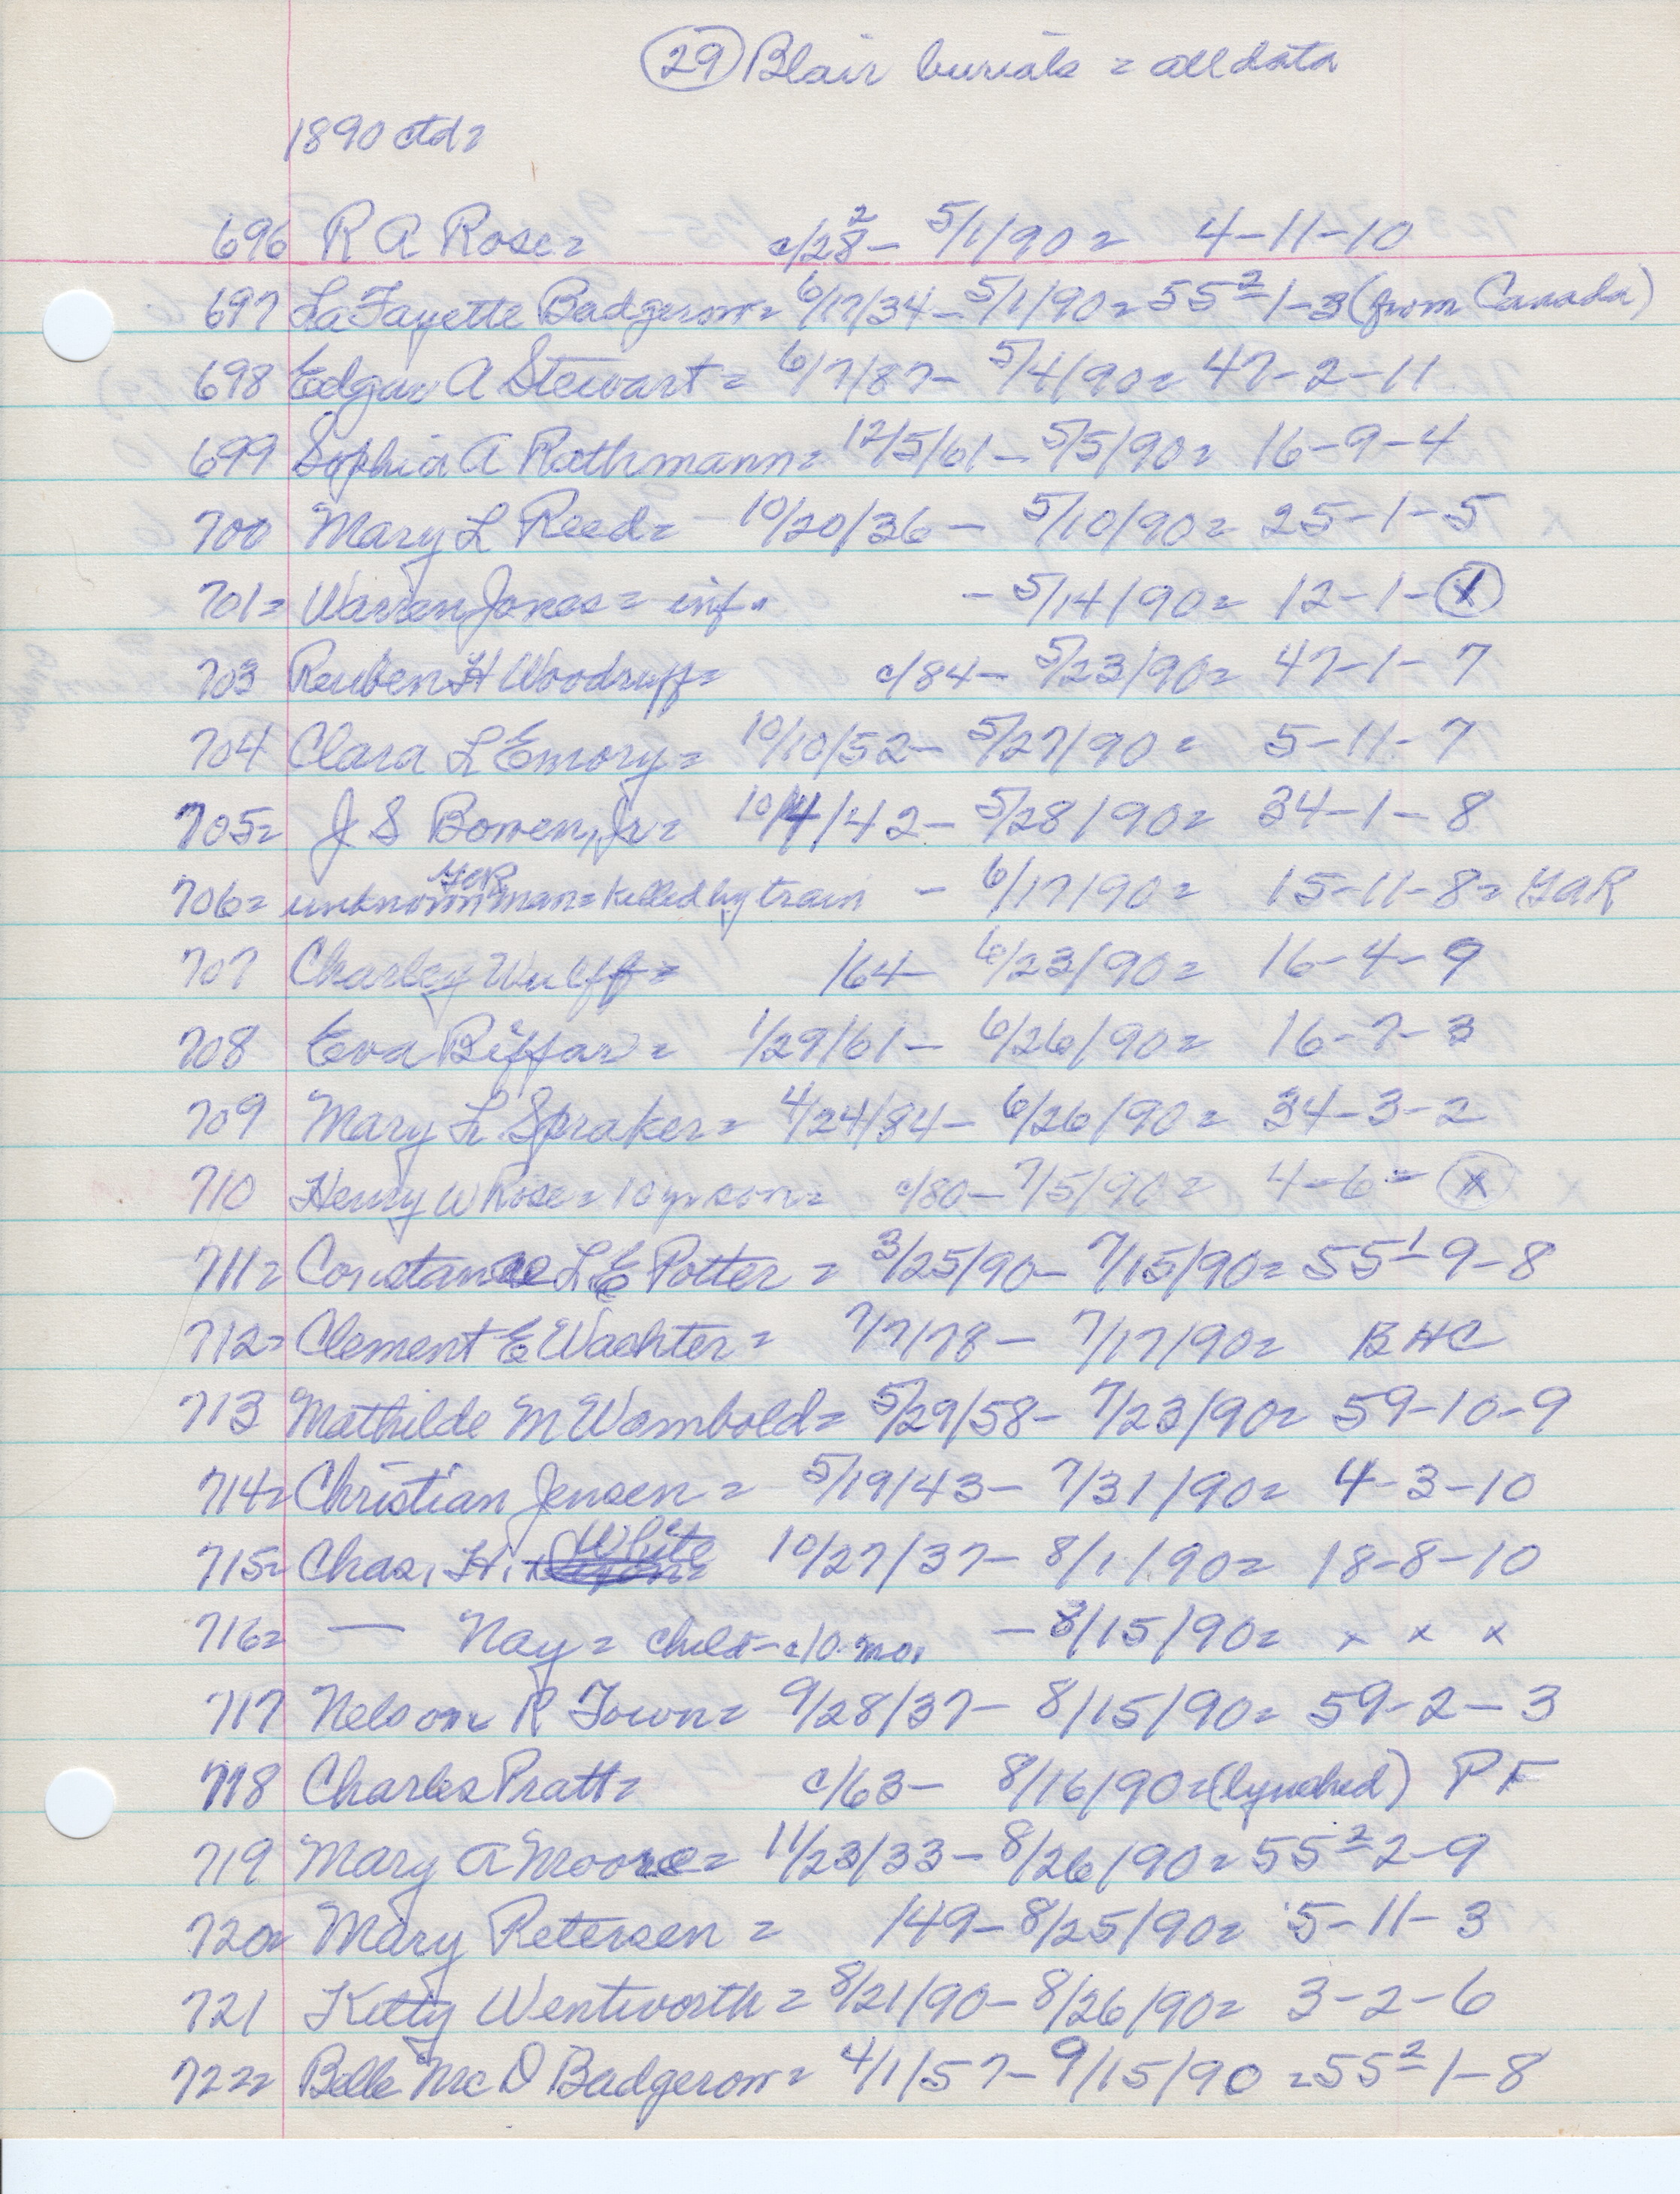 (29) Blair burials = all data
1890 ctd=
696 R A Rose= c/28 2 - 5/1/90= 4-11-10
697 LaFayette Badgerow= 6/17/34 - 5/1/90= 55 2 1-3 (from Canada)
698 Edgar A Stewart= 6/7/87- 5/4/90= 47-2-11
699 Sophia A Rathmann= 12/5/61- 5/5/90= 16-9-4
700 Mary L Reed= 10/20/36 - 5/10/90= 25-1-5
701= Warren Jones= inf. - 5/14/90= 12-1-(X)
703 Reuben H Woodruff= c/84- 5/23/90= 47-1-7
704 Clara L Emory= 10/10/52- 5/27/90= 5-11-7
705= J S Bowen, Jr= 10/4/42- 5/28/90= 34-1-8
706= unknown GAR man=killed by train - 6/17/90= 15-11-8= GAR
707 Charley Wulff= /64- 6/23/90= 16-4-9
708 Eva Biffar= 1/29/61- 6/26/90= 16-7-3
709 Mary L Spraker= 4/24/84- 6/26/90= 34-3-2
710 Henry W Rose=10 yr son= c/80- 7/5/90= 4-6-(X)
711= Constance L E Potter= 3/25/90- 7/15/90= 55 1 9-8
712= Clement E Wachter= 7/7/78- 7/17/90= BHC
713 Mathilde M Wambold= 5/29/58- 7/23/90= 59-10-9
714= Christian Jensen= 5/19/43- 7/31/90= 4-3-10
715= Chas. H. White 10/27/37- 8/1/90= 18-8-10
716= — Nay= child-c/10 mo. - 8/15/90= x x x
717 Nelson R Town= 9/28/37- 8/15/90= 59-2-3
718 Charles Pratt= c/63- 8/16/90=(lynched) PF
719 Mary A Moore= 11/23/33- 8/26/90= 55 2 2-9
720= Mary Petersen= /49- 8/25/90= 5-11-3
721 Kitty Wentworth= 8/21/90- 8/26/90= 3-2-6
722= Belle McD Badgerow= 4/1/57- 9/15/90 =55 2 1-8